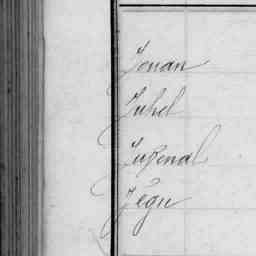 Jouan
Juhel
Juzenal
Jégu